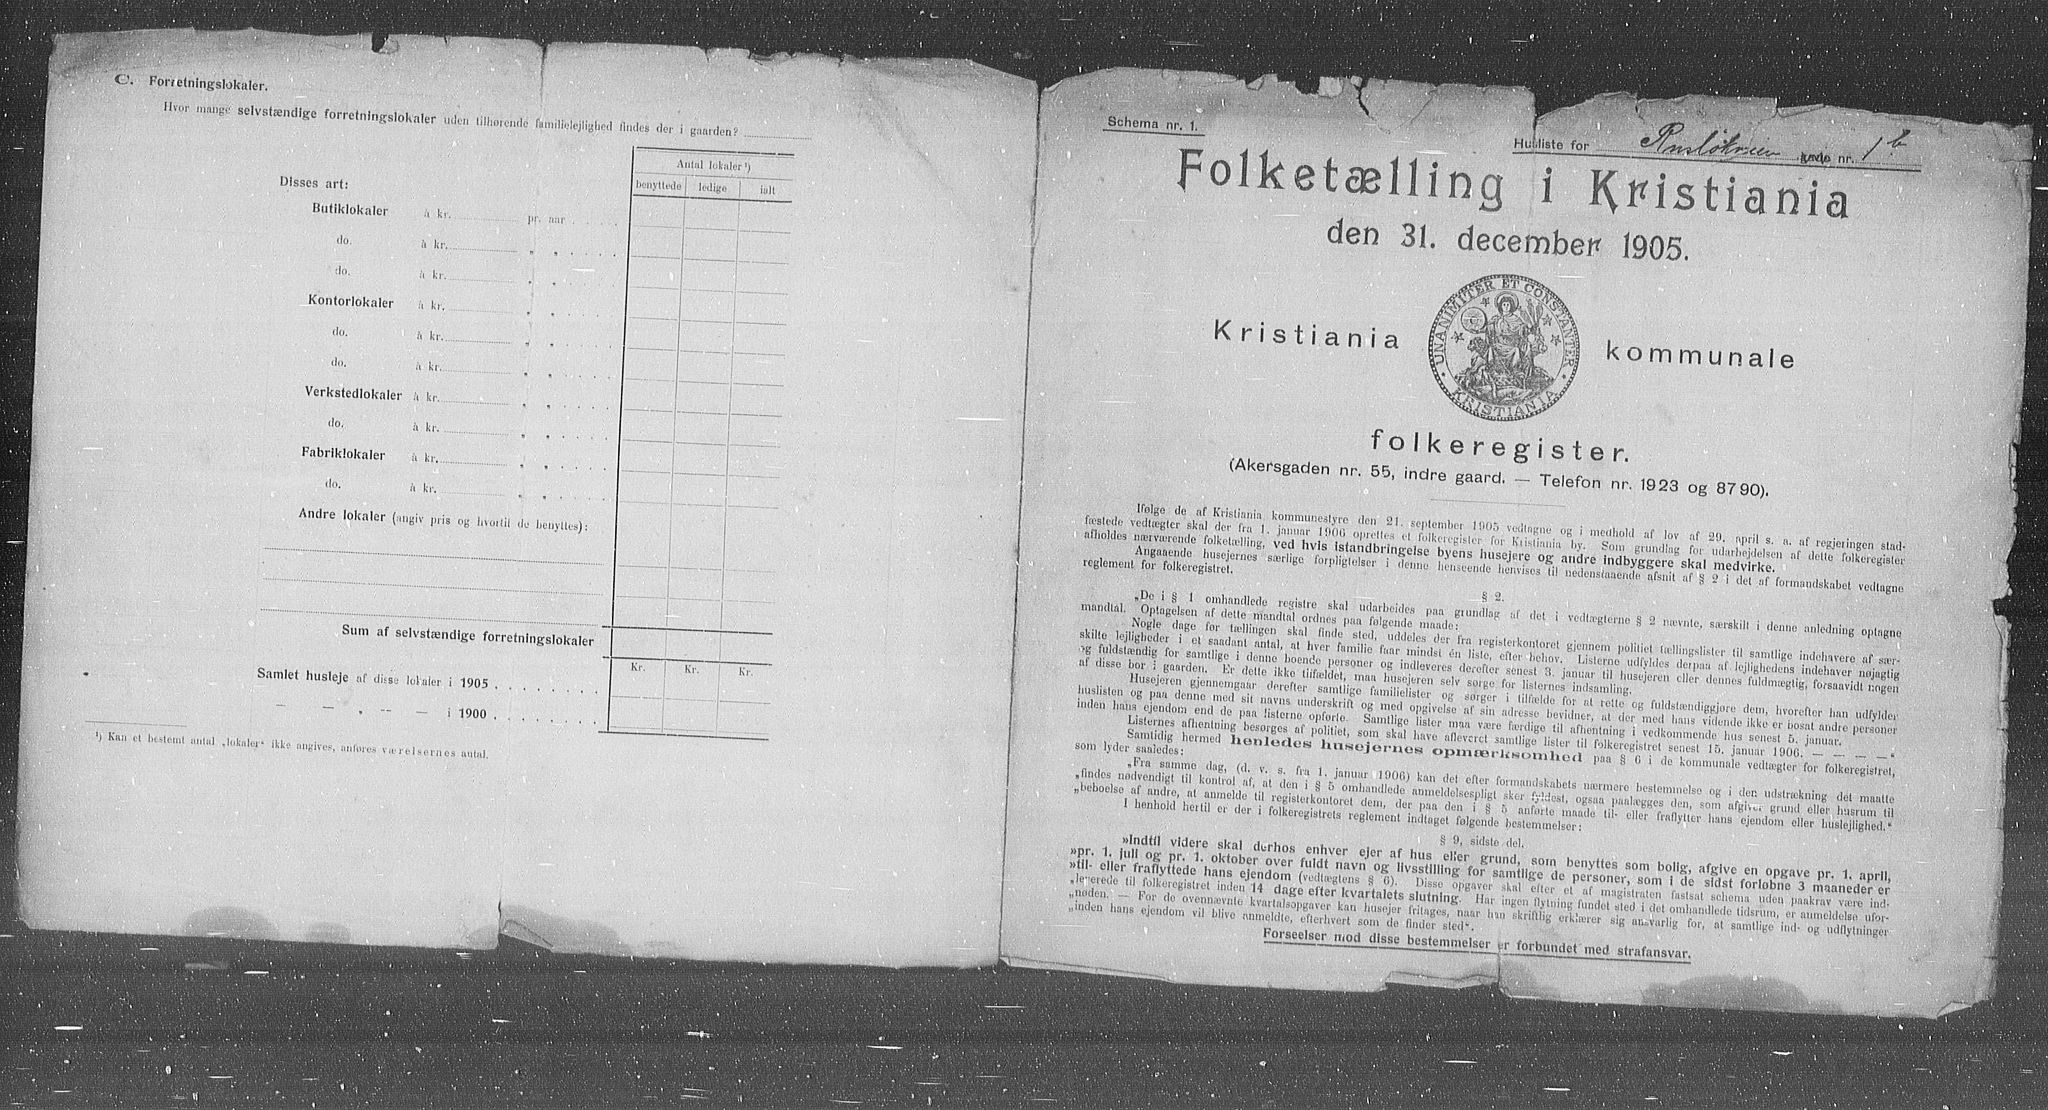 C. Forretningslokaler.
Hvor mange selvstændige forretningslokaler uden tilhørende familielejlighed findes der i gaarden?
Antal lokaler ¹)
Disses art:
benyttede ledige ialt
Butiklokaler à kr. pr. aar
do. à kr. „ „
do. à kr. „ „
Kontorlokaler à kr. „ „
do. à kr. „ „
do. à kr. „ „
Verkstedlokaler à kr. „ „
do. à kr. „ „
Fabriklokaler à kr. „ „
do. à kr. „ „
Andre lokaler (angiv pris og hvortil de benyttes):
Sum af selvstændige forretningslokaler
Kr. Kr. Kr.
Samlet husleje af disse lokaler i 1905
— — „ — — i 1900
¹) Kan et bestemt antal „lokaler“ ikke angives, anføres værelsernes antal.
Schema nr. 1.
Husliste for Ruseløkveien gade nr. 1 b
Folketælling i Kristiania
den 31. december 1905.
UNANIMITER ET CONSTANTER
KRISTIANIA
Kristiania kommunale
folkeregister.
(Akersgaden nr. 55, indre gaard. — Telefon nr. 1923 og 8790).
Ifølge de af Kristiania kommunestyre den 21. september 1905 vedtagne og i medhold af lov af 29. april s. a. af regjeringen stad-
fæstede vedtægter skal der fra 1. januar 1906 oprettes et folkeregister for Kristiania by. Som grundlag for udarbejdelsen af dette folkeregister
afholdes nærværende folketælling, ved hvis istandbringelse byens husejere og andre indbyggere skal medvirke.
Angaaende husejernes særlige forpligtelser i denne henseende henvises til nedenstaaende afsnit af § 2 i det af formandskabet vedtagne
reglement for folkeregistret.
§ 2.
„De i § 1 omhandlede registre skal udarbeides paa grundlag af det i vedtægterne § 2 nævnte, særskilt i denne anledning optagne
mandtal. Optagelsen af dette mandtal ordnes paa følgende maade:
Nogle dage før tællingen skal finde sted, uddeles der fra registerkontoret gjennem politiet tællingslister til samtlige indehavere af sær-
skilte lejligheder i et saadant antal, at hver familie faar mindst én liste, efter behov. Listerne udfyldes derpaa af lejlighedens indehaver nøjagtig
og fuldstændig for samtlige i denne boende personer og indleveres derefter senest 3. januar til husejeren eller dennes fuldmægtig, forsaavidt nogen
af disse bor i gaarden. Er dette ikke tilfældet, maa husejeren selv sørge for listernes indsamling.
Husejeren gjennemgaar derefter samtlige familielister og sørger i tilfælde for at rette og fuldstændiggjøre dem, hvorefter han udfylder
huslisten og paa denne med sit navns underskrift og med opgivelse af sin adresse bevidner, at der med hans vidende ikke er bosat andre personer
inden hans ejendom end de paa listerne opførte. Samtlige lister maa være færdige til afhentning i vedkommende hus senest 5. januar.
Listernes afhentning besørges af politiet, som skal have afleveret samtlige lister til folkeregistret senest 15. januar 1906. — — — —“
Samtidig hermed henledes husejernes opmærksomhed paa § 6 i de kommunale vedtægter for folkeregistret,
som lyder saaledes:
„Fra samme dag, (d. v. s. fra 1. januar 1906) kan det efter formandskabets nærmere bestemmelse og i den udstrækning det maatte
„findes nødvendigt til kontrol af, at den i § 5 omhandlede anmeldelsespligt sker fyldest, ogsaa paalægges den, som afgiver grund eller husrum til
„beboelse af andre, at anmelde til registerkontoret dem, der paa den i § 5 anførte maade til- eller fraflytter hans ejendom eller huslejlighed.“
I henhold hertil er der i folkeregistrets reglement indtaget følgende bestemmelser:
§ 9, sidste del.
»Indtil videre skal derhos enhver ejer af hus eller grund, som benyttes som bolig, afgive en opgave pr. 1. april,
»pr. 1. juli og pr. 1. oktober over fuldt navn og livsstilling for samtlige de personer, som i de sidst forløbne 3 maaneder er
»til- eller fraflyttede hans ejendom (vedtægtens § 6). Disse opgaver skal efter et af magistraten fastsat schema uden paakrav være ind-
„leverede til folkeregistret inden 14 dage efter kvartalets slutning. Har ingen flytning fundet sted i det omhandlede tidsrum, er anmeldelse ufor-
„nøden. — For de ovennævnte kvartalsopgaver kan husejer fritages, naar han skriftlig erklærer sig ansvarlig for, at samtlige ind- og udflytninger
„inden hans ejendom vil blive anmeldte, efterhvert som de finder sted“.
Forseelser mod disse bestemmelser er forbundet med strafansvar.